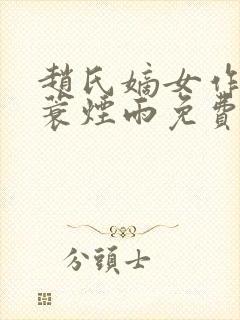 趙氏嫡女作
蓑煙雨免費
分頭士